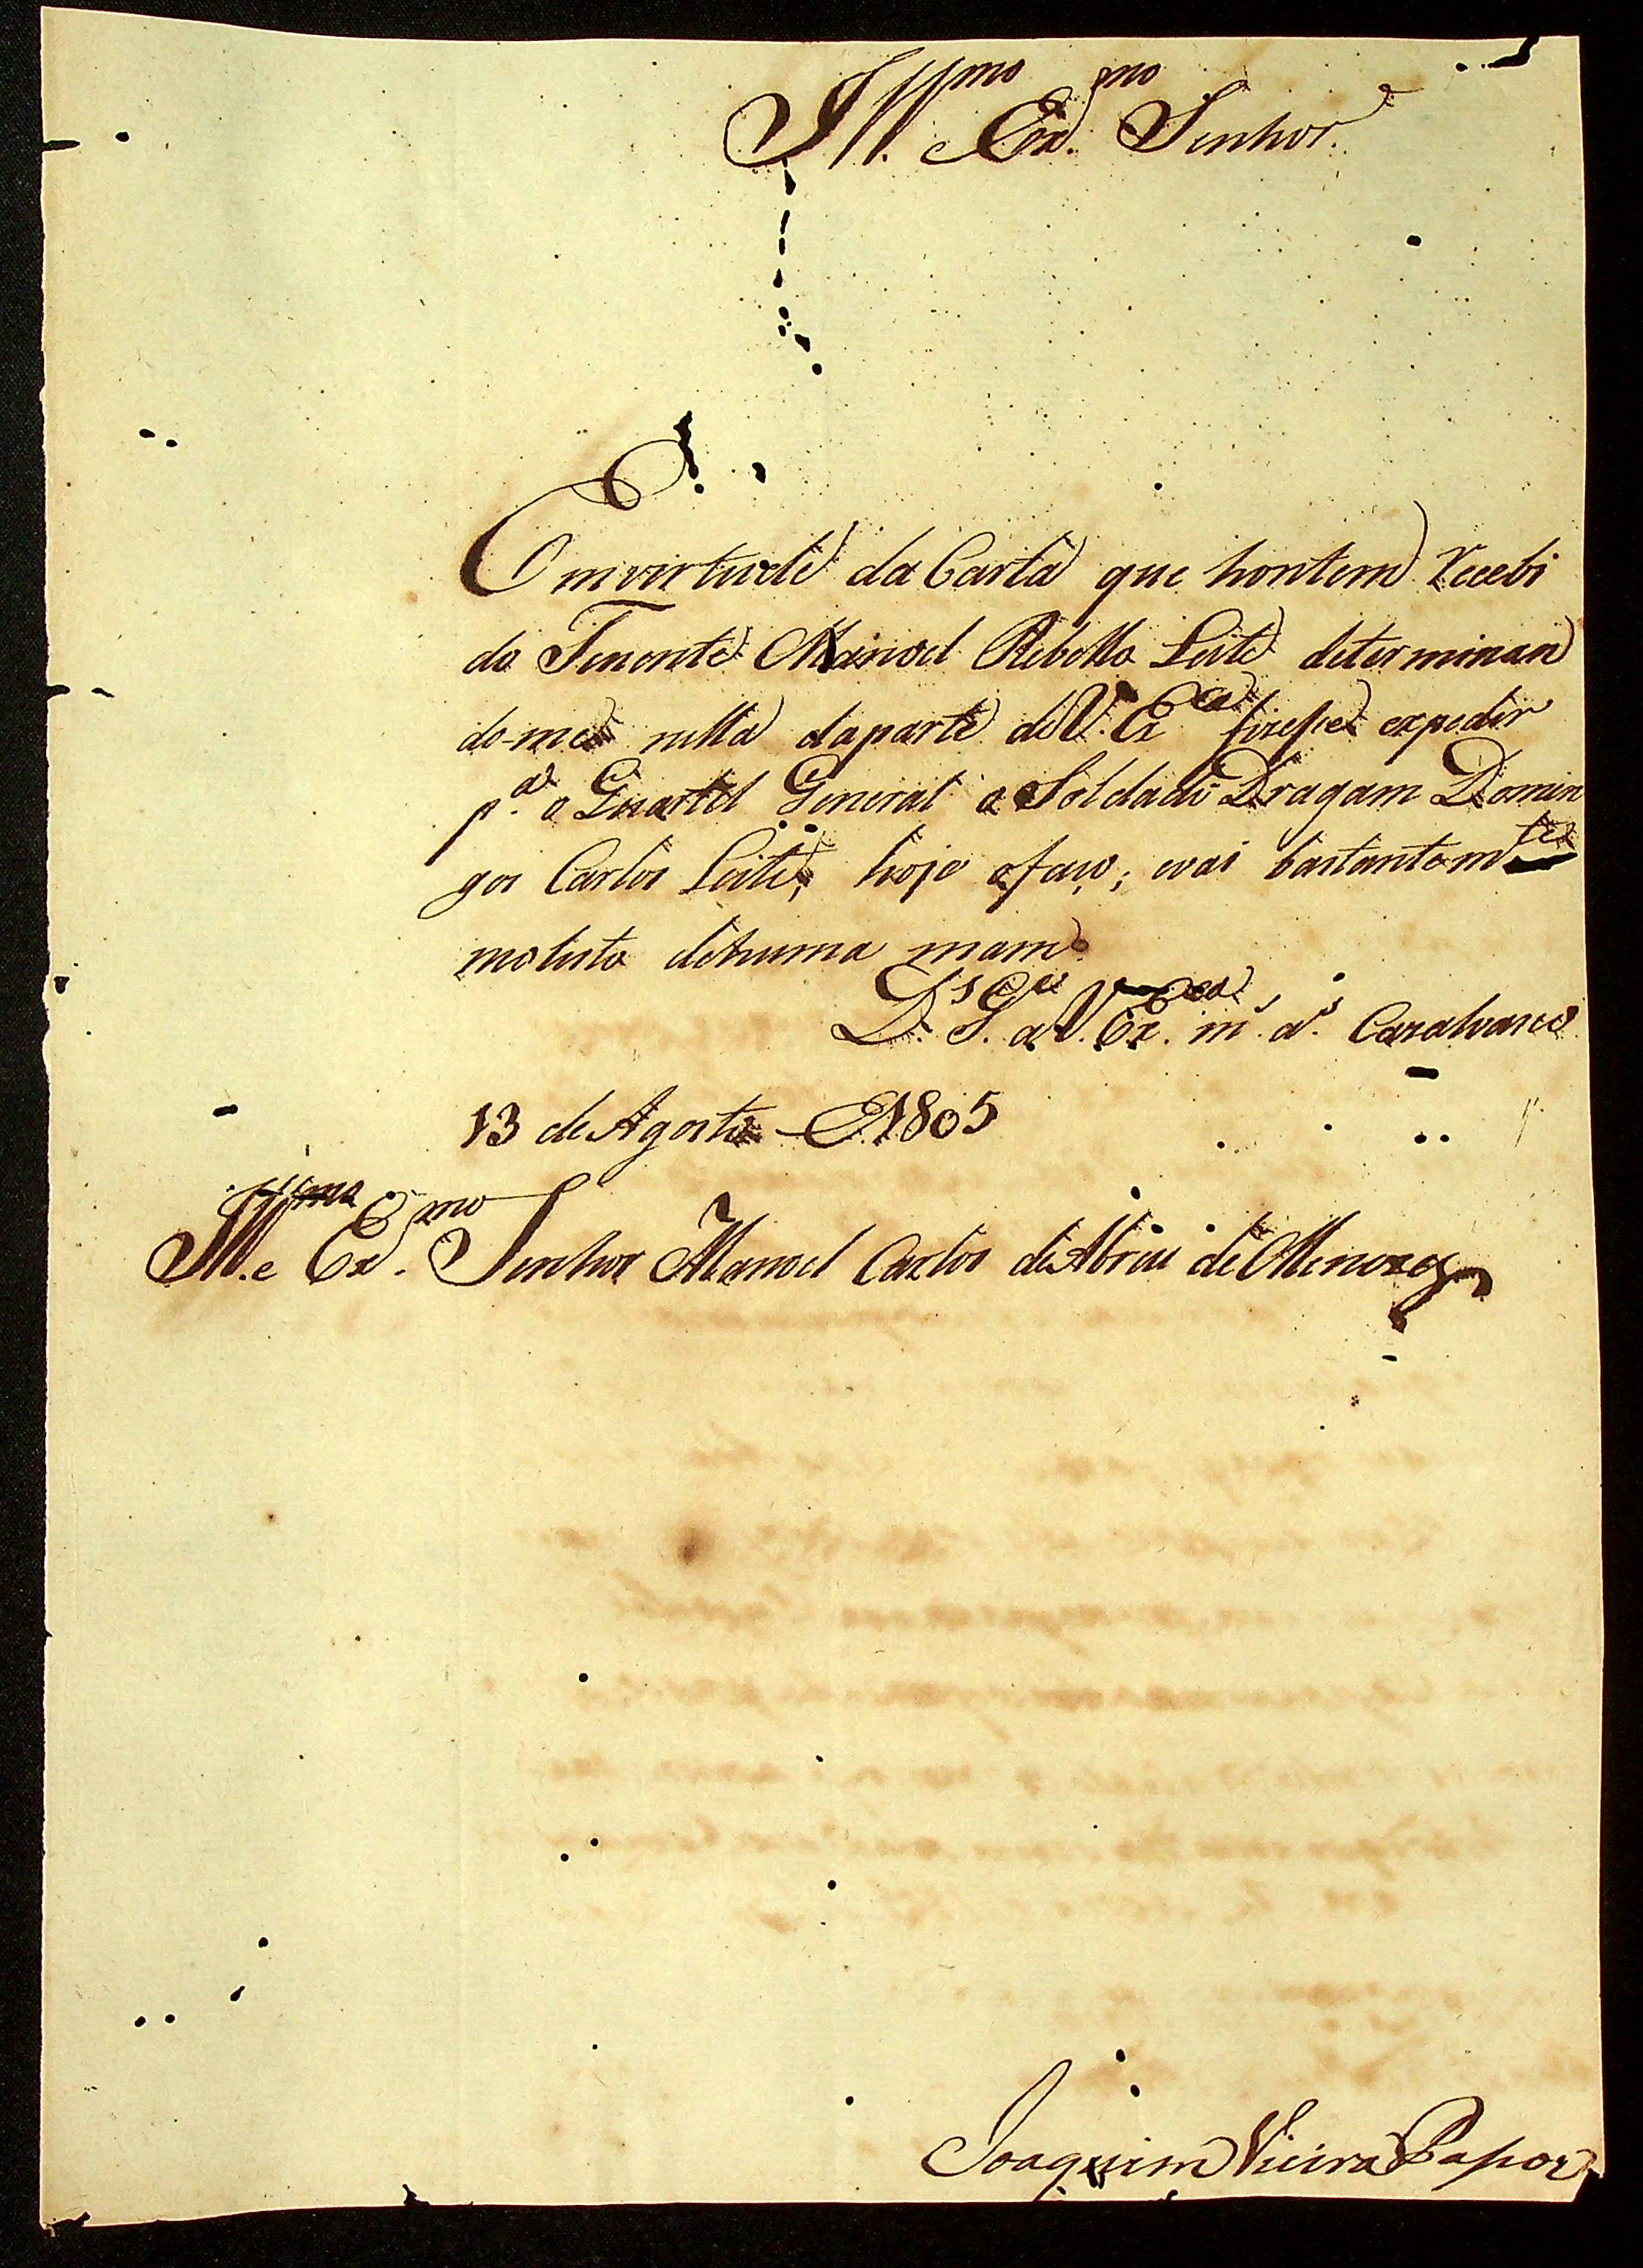 Ill.mo Ex.mo Senhor.
Em virtude da Carta que hontem recebi
do Tenente Manoel Rebello Leite determinan
do-me nella da parte de V. Ex.ca fizesse expedir
p.a o Quartel General o Soldado Dragam Domin
gos Carlos Leite, hoje o faço; e vai bastantem.te
molesto de huma mam.
D.s G.e a V. Ex.ca m.s a.s Cazalvasco
13 de Agosto 1805
Ill.mo e Ex.mo Senhor Manoel Carlos de Abreu de Menezes
Joaquim Vieira Passos